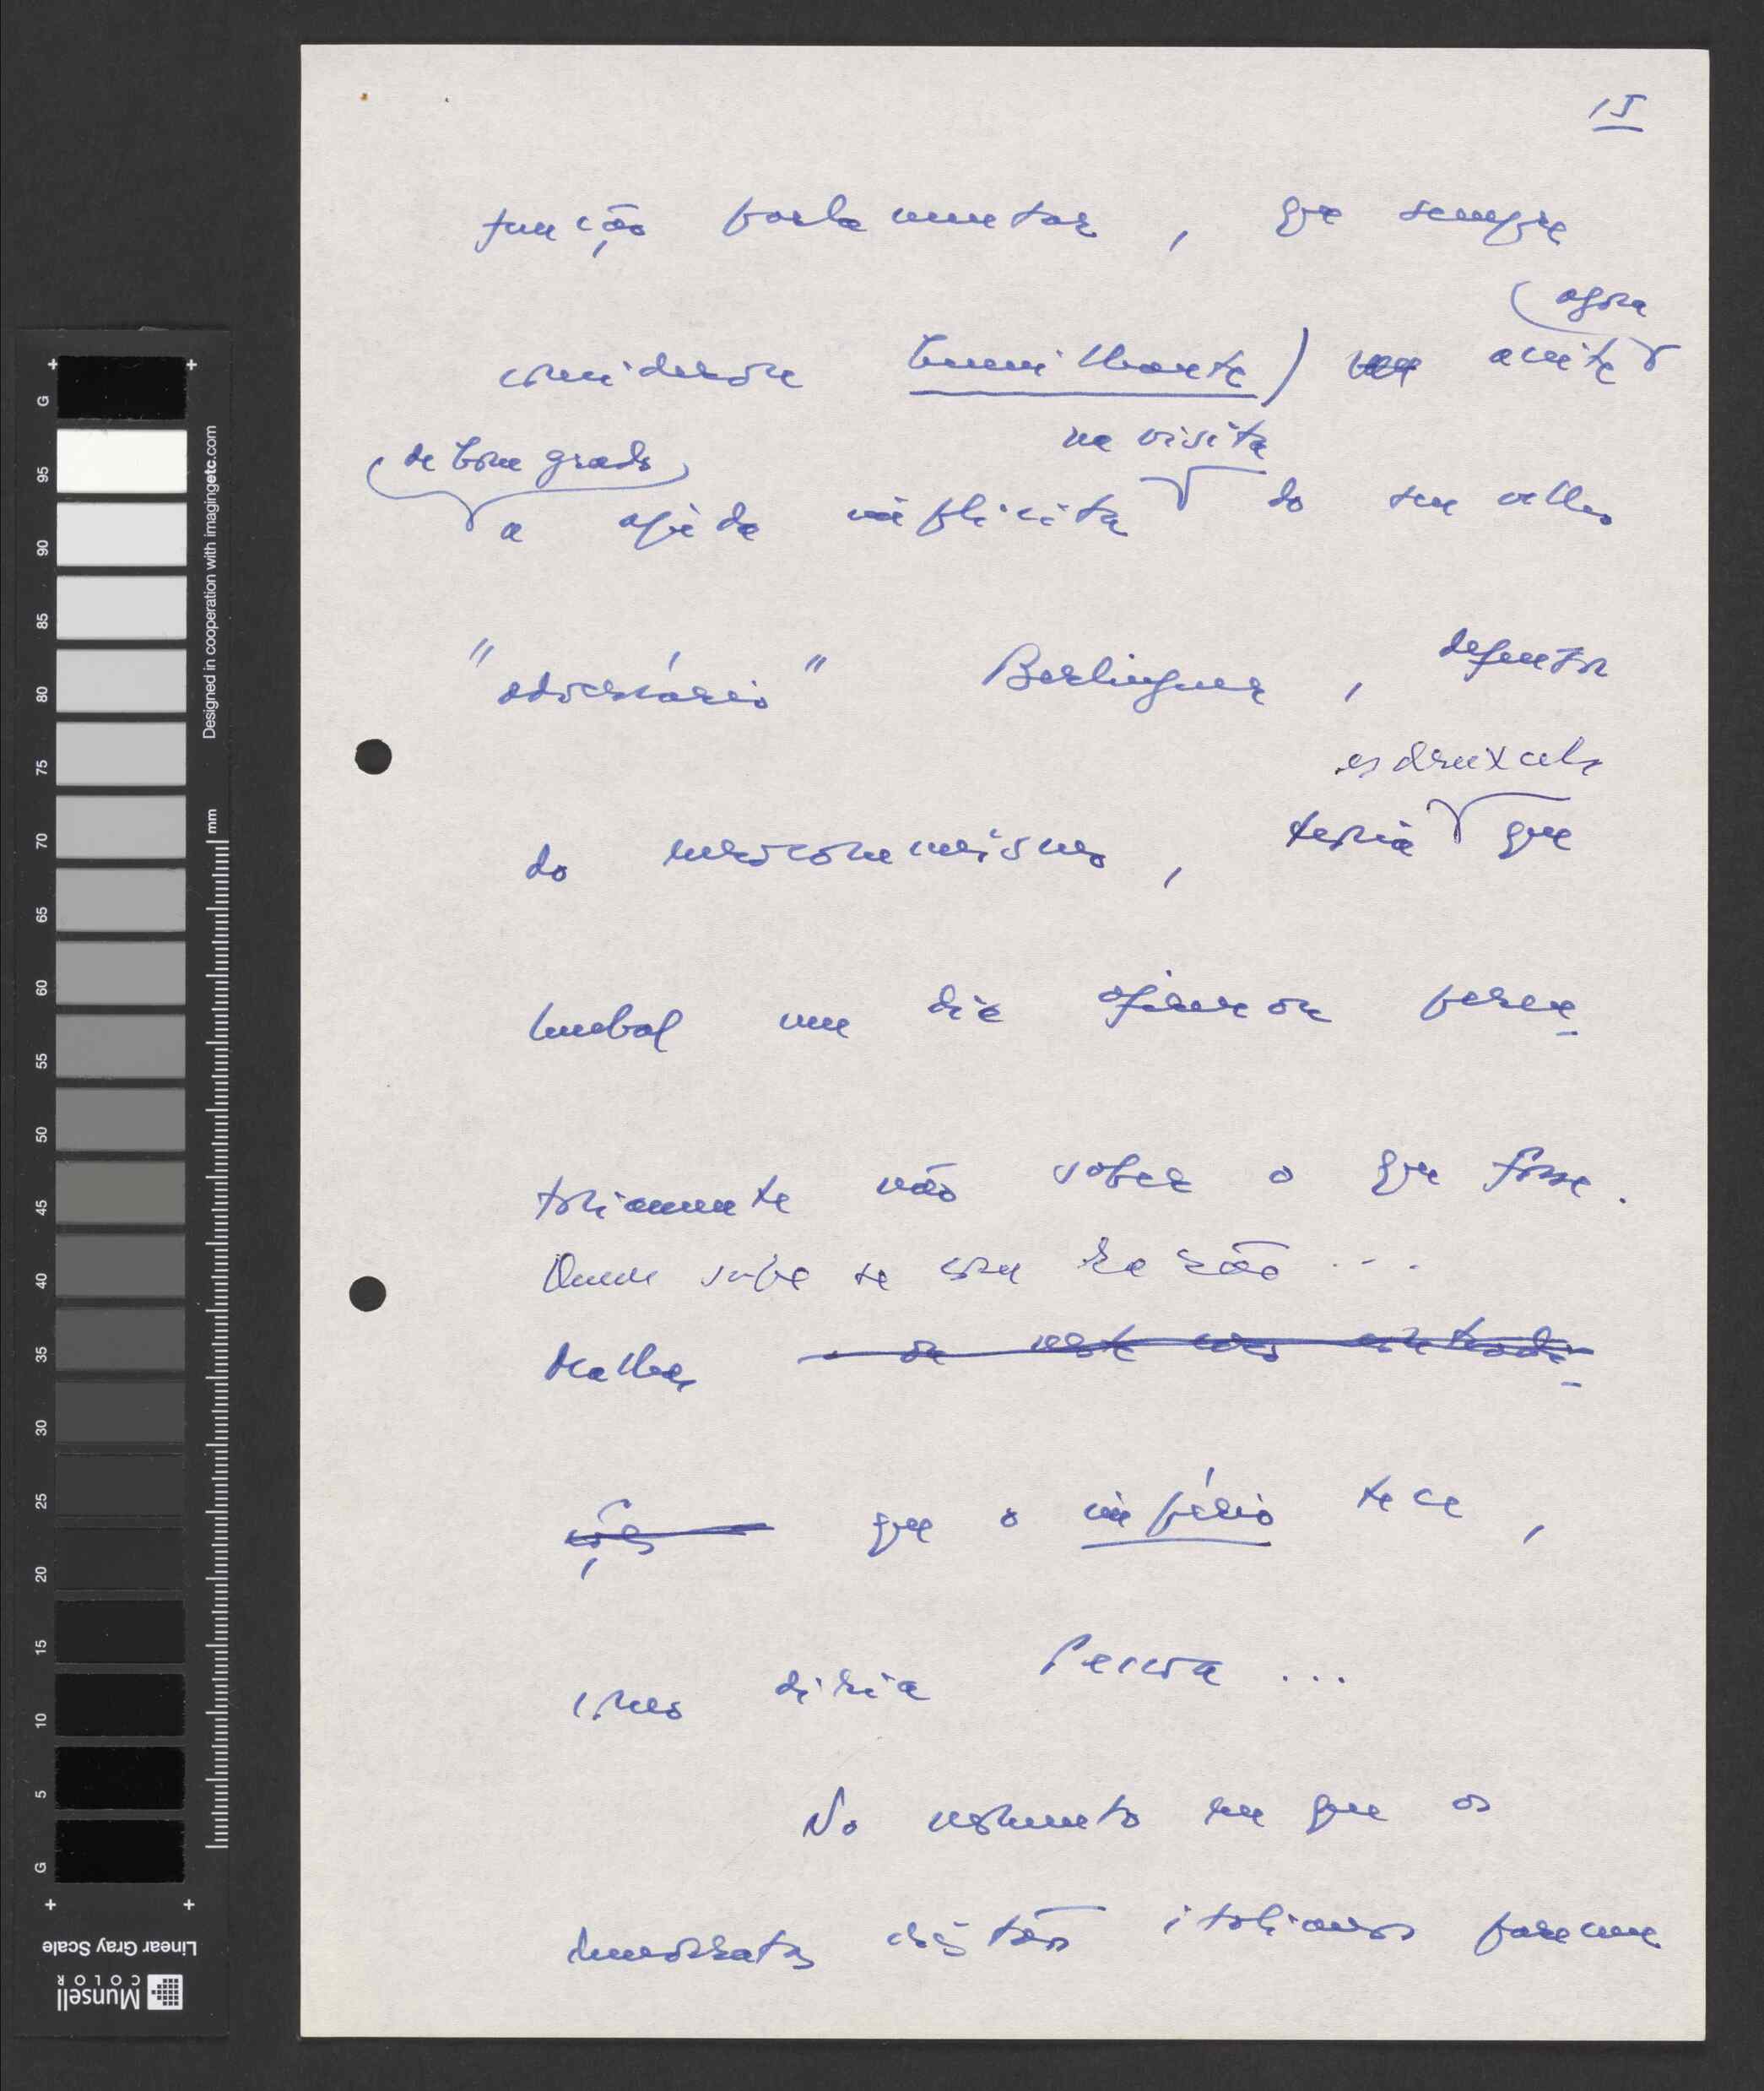 15
função parlamentar, que sempre
agora
considerou humilhante) aceite
de bom grado
na visita
a ajuda implícita do seu velho
"adversário" Berlinguer, defensor
esdrúxula
do eurocomunismo, teoria que
Cunhal um dia afirmou peremp-
toriamente não saber o que fosse.
Quem sabe se com razão...
Malhas que o império tece,
como diria Pessoa...
No momento em que os
democratas cristãos italianos parecem
G 95 90 85 80 75 70 65 60 55 50 45 40 35 30 25 20 15 10 5 G
mm
Designed in cooperation with imagingetc.com
Linear Gray Scale
Munsell
COLOR